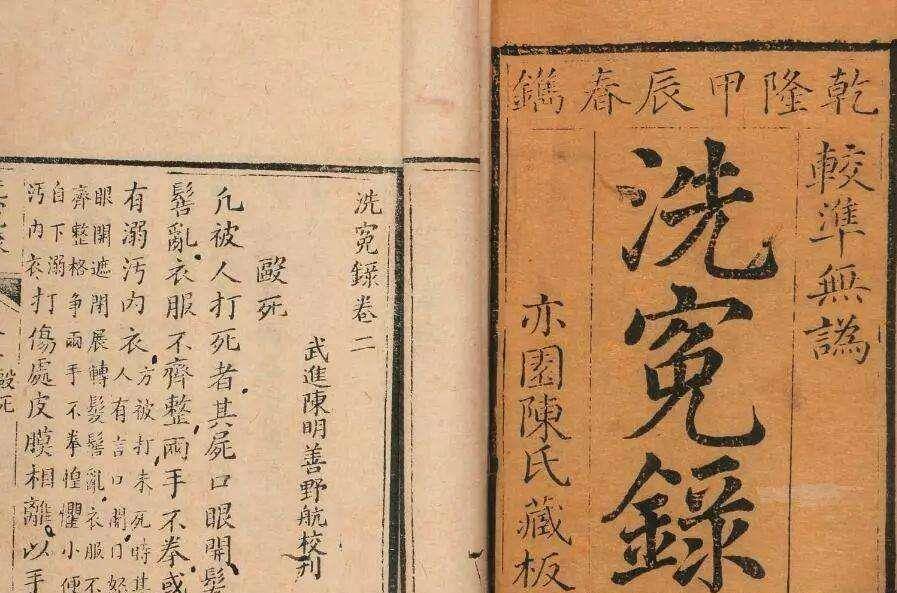 乾隆甲辰春鐫
較準無譌
洗冤錄
亦園陳氏藏板
洗冤錄卷二
武進陳明善野航校刊
毆死
凡被人打死者其屍口眼開髮
髻亂衣服不齊整兩手不拳或
有溺汚內衣
方被打未死時其
人有言口開目怒
眼開遮閉展轉髮髻亂衣服不
齊整格爭兩手不拳惶懼小便
自下溺
汚內衣
打傷處皮膜相離以手
毆死